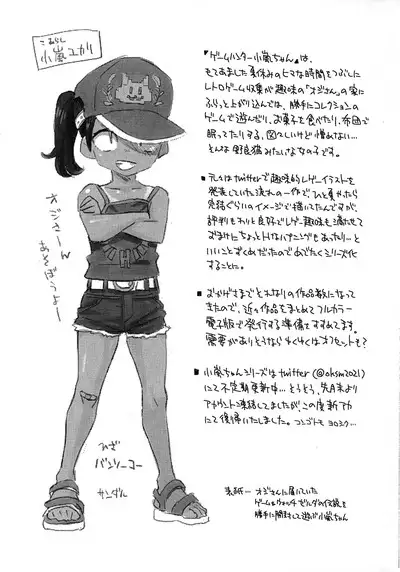 こあらし
小嵐ユカリ
オジさーん
あそぼうよー
ひざ
バンソーコー
サンダル
『ゲームハンター小嵐ちゃん』は、
もてあました夏休みのヒマな時間をつぶしに
レトロゲーム収集が趣味の「オジさん」の家に
ふらっと上がり込んでは、勝手にコレクションの
ゲームで遊んだり、お菓子を食べたり、布団で
眠ってたりする、図々しいけど憎めない…
そんな野良猫みたいな女の子です。
■元々はtwitterで趣味的レゲーイラストを
発表していた流れの一作で、ひと夏かたら
完結ぐらいのイメージで描いてたんですが、
評判もわりと良好でレゲー趣味も満たせて
おまけにちょっとHなハプニングもあったりーと
いいことずくめだったのでめでたくシリーズ化
することに。
■おかげさまでそれなりの作品数になって
きたので、近々作品をまとめてフルカラー
電子版で発行する準備をすすめてます。
需要がありそうならゆくゆくはオフセットも?
■小嵐ちゃんシリーズはtwitter(@ohsm2021)
にて不定期更新中…とうとう、先月末より
アカウント凍結してましたがこの度新アカ
にて復帰いたしました。コンゴトモ ヨロシク…
表紙… オジさんに届いていた
ゲーム&ウォッチ ゼルダの伝説を
勝手に開封して遊ぶ小嵐ちゃん